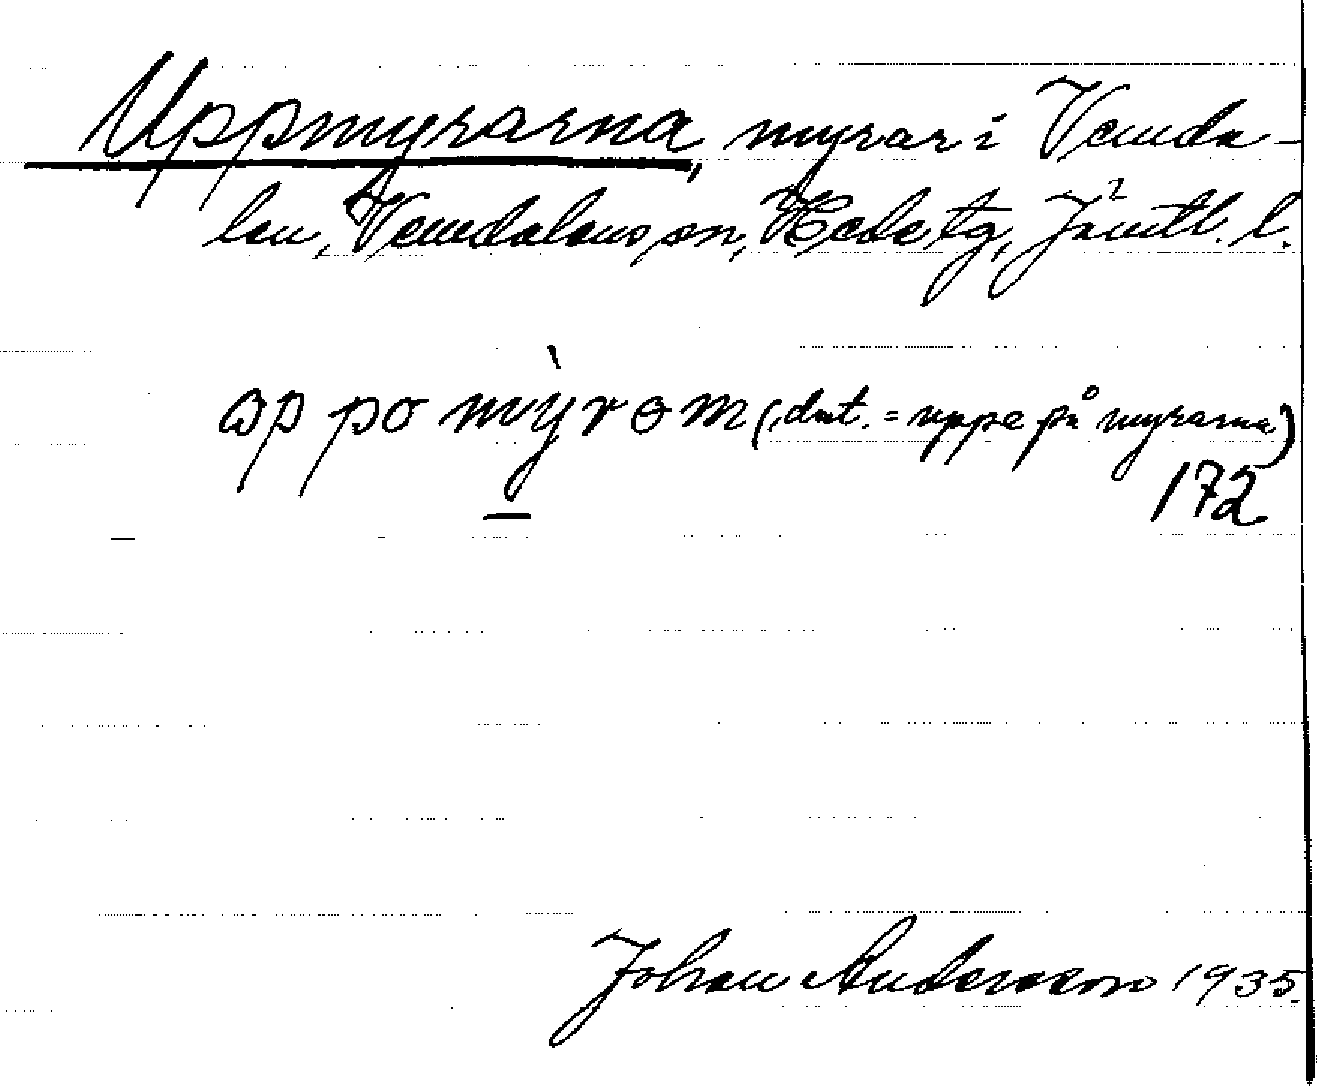 Uppmyrarna, myrar i Vemda-
len, Vemdalens sn, Hede tg, Jämtl. l.
op po mỳrom (dat. = uppe på myrarna)
172
Johan Andersson 1935.